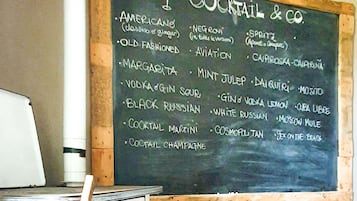 COCKTAIL & CO.
• AMERICANO • NEGRONI • SPRITZ
• OLD FASHIONED • AVIATION • CAIPIROSKA-CAIPIRINHA
• MARGARITA • MINT JULEP • DAIQUIRI • MOJITO
• VODKA o GIN SOUR • GIN o VODKA LEMON • CUBA LIBRE
• BLACK RUSSIAN • WHITE RUSSIAN • MOSCOW MULE
• COCKTAIL MARTINI • COSMOPOLITAN • SEX ON THE BEACH
• COCTAIL CHAMPAGNE